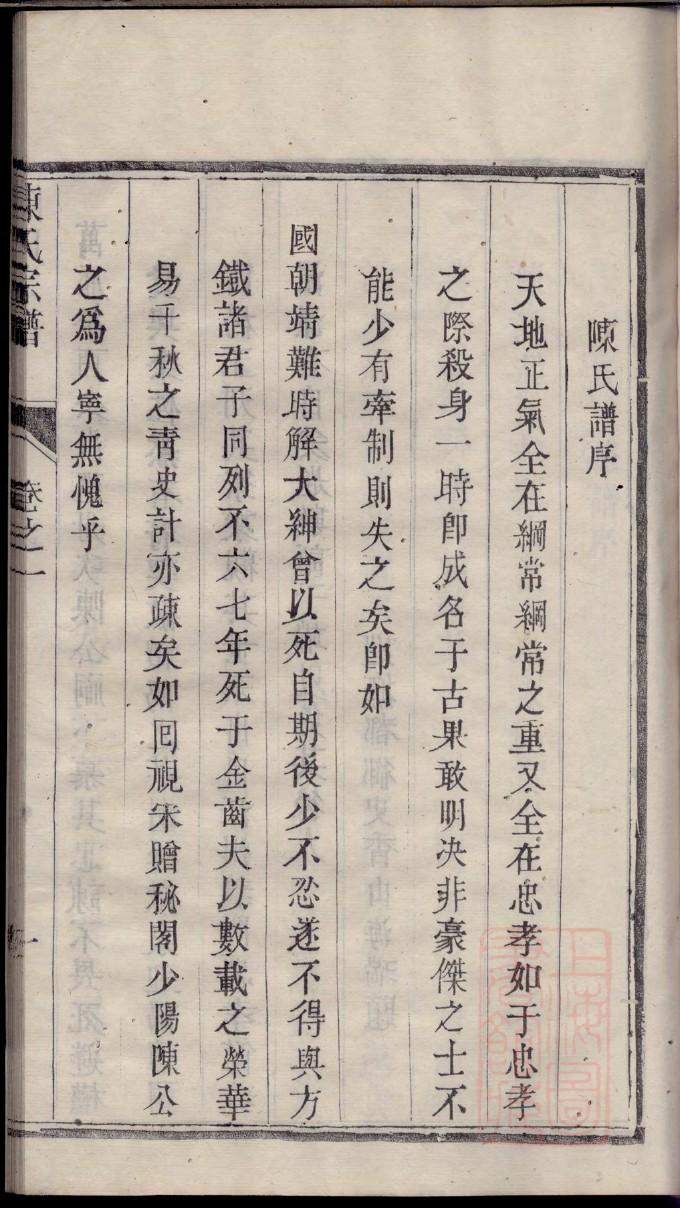 陳氏譜序
天地正氣全在綱常綱常之重又全在忠孝如于忠孝
之際殺身一時卽成名于古果敢明决非豪傑之士不
能少有牽制則失之矣卽如
國朝靖難時解大紳曾以死自期後少不忍遂不得與方
鐵諸君子同列不六七年死于金齒夫以數載之榮華
易千秋之靑史計亦疎矣如囘視宋贈秘閣少陽陳公
之爲人寧無愧乎
陳氏宗譜
卷之一
一